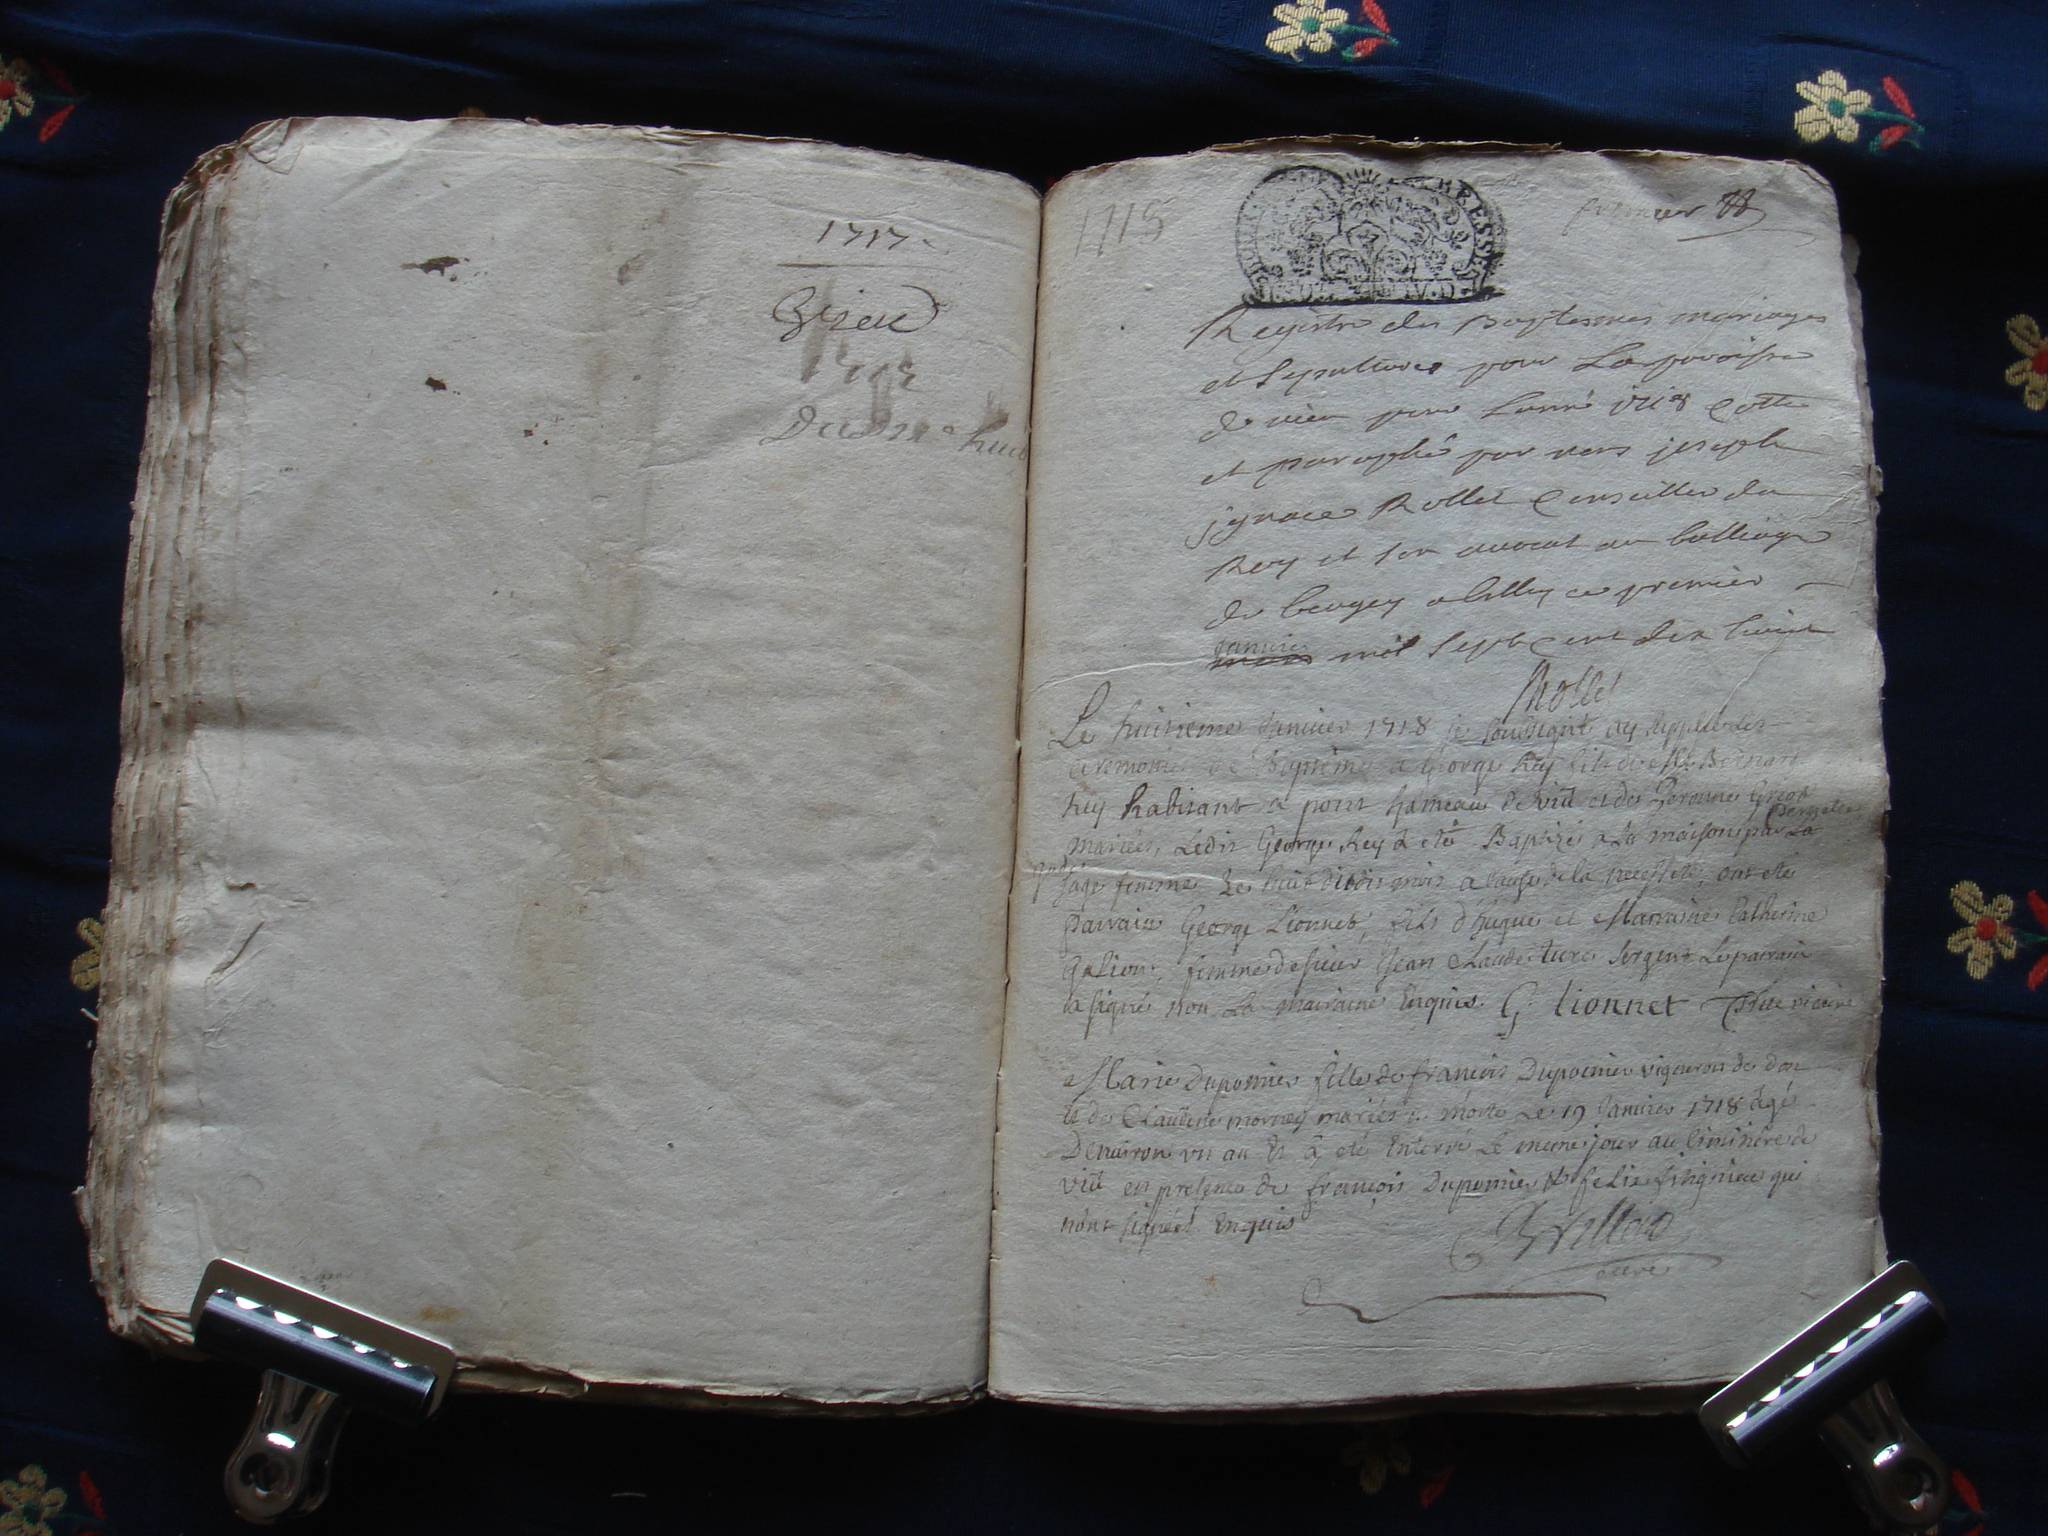 1717
1718
premier
BRESSE
Registre des Baptesmes mariages
et Sepultures pour La paroisse
de vieu pour Lanné 1718 Cotté
et paraphé par nous joseph
ignace Rollet Conseiller du
Roy et son avocat au balliage
de beugey a belley ce premier
janvier mil Sept Cent dix huict
Rollet
Le huitieme Janvier 1718 je soussigné ay supplée les
ceremonies de Baptême a George Rey fils de Bernard
Rey habitant a pont hameau de vieu et de
mariés, Ledit George Rey à eté Baptizé a La maison par La
sage femme Le huit dudit mois a cause de la necessité, ont eté
parrain George Lionnet, fils d'hugue et Marraine Catherine
femme de sieur Jean Claude sergent Le parrain
a signé non La marraine Enquis. G. lionnet vicaire
Marie Duponnier fille de françois Duponnier vigneron de don
et de Claudine mornay mariés morte Le 19 Janvier 1718 agé
Denviron un an Et à eté Enterré Le meme jour au Cimitière de
vieu en presence de françois Duponnier & felix qui
n'ont signés Enquis
curé